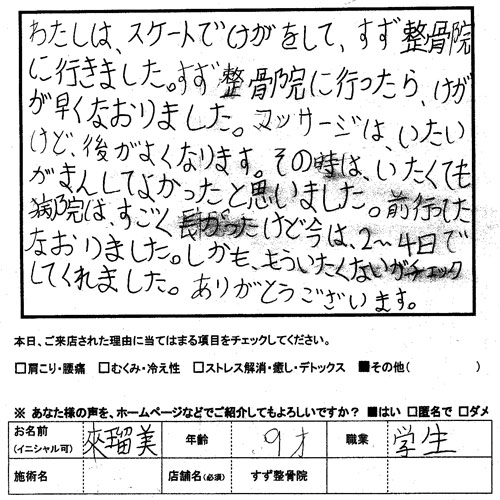 わたしは、スケートでけがをして、すず整骨院
に行きました。すず整骨院に行ったら、けが
が早くなおりました。マッサージは、いたい
けど、後がよくなります。その時は、いたくても
がまんしてよかったと思いました。前行ってた
病院は、すごく長かったけど今は、2〜4日で
なおりました。しかも、もういたくないがチェック
してくれました。ありがとうございます。
本日、ご来店された理由に当てはまる項目をチェックしてください。
□肩こり・腰痛 □むくみ・冷え性 □ストレス解消・癒し・デトックス ■その他( )
※ あなた様の声を、ホームページなどでご紹介してもよろしいですか? ■はい □匿名で □ダメ
お名前(イニシャル可) 來瑠美 年齢 9才 職業 学生
施術名 店舗名(必須) すず整骨院